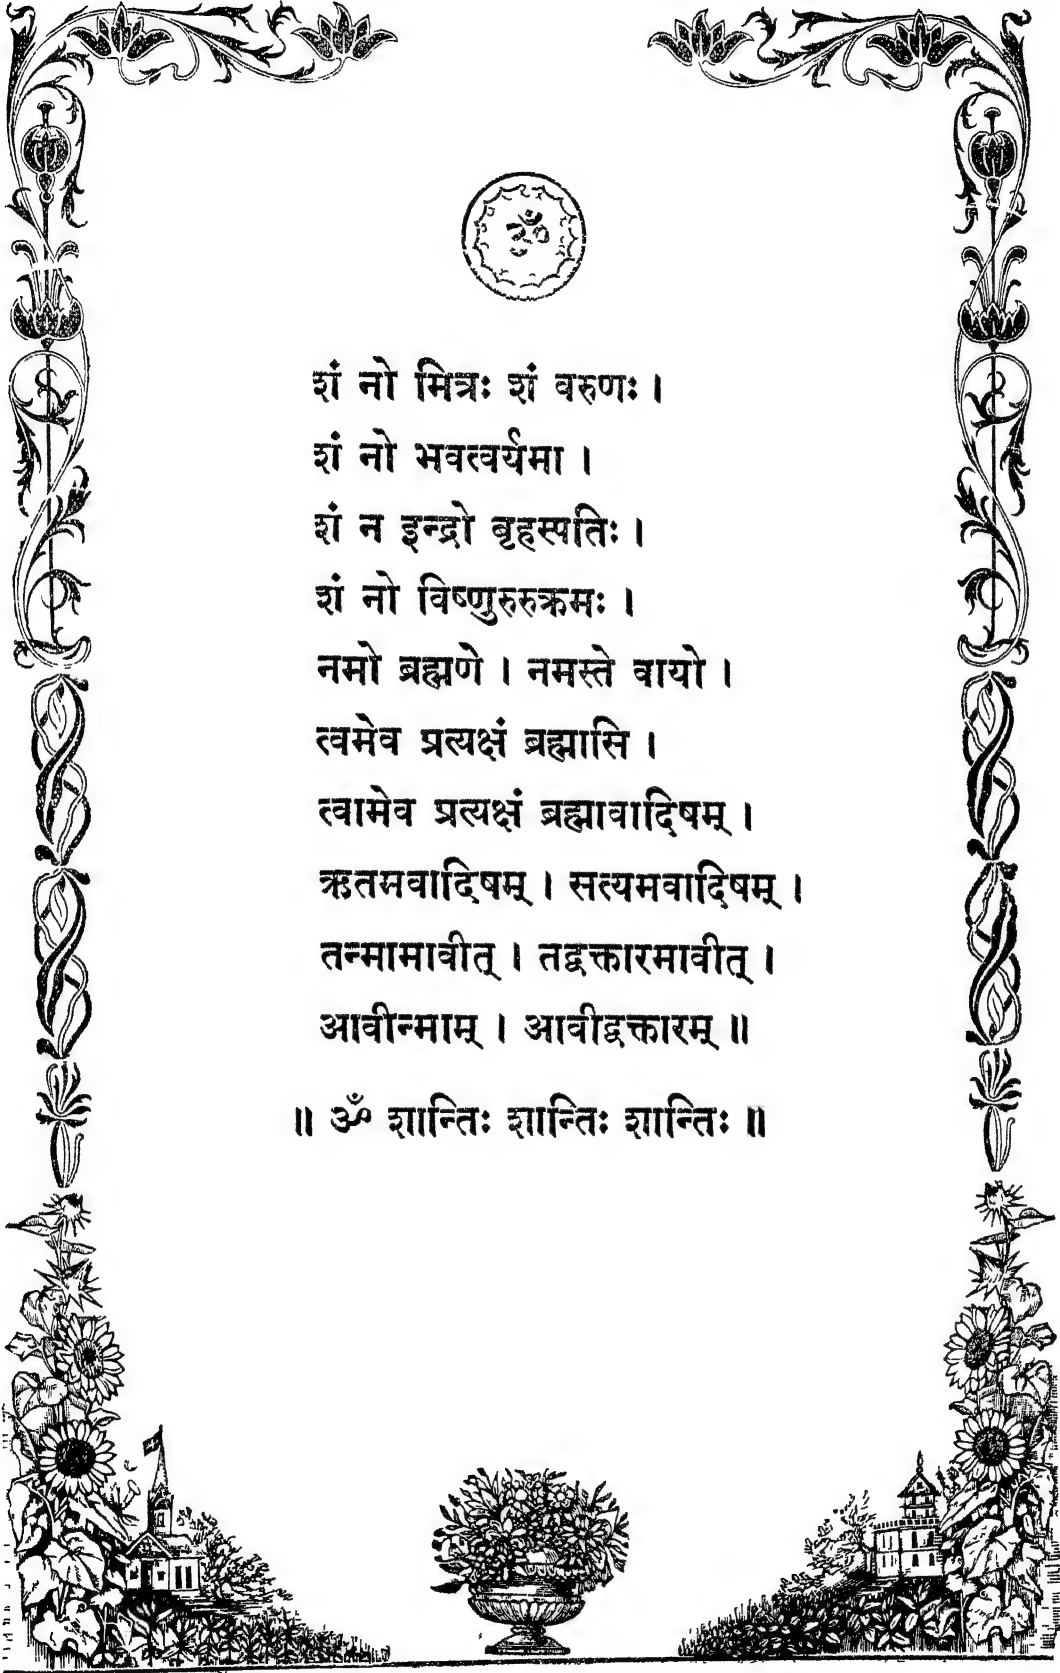 ॐ
शं नो मित्रः शं वरुणः ।
शं नो भवत्वर्यमा ।
शं न इन्द्रो बृहस्पतिः ।
शं नो विष्णुरुरुक्रमः ।
नमो ब्रह्मणे । नमस्ते वायो ।
त्वमेव प्रत्यक्षं ब्रह्मासि ।
त्वामेव प्रत्यक्षं ब्रह्मावादिषम् ।
ऋतमवादिषम् । सत्यमवादिषम् ।
तन्मामावीत् । तद्वक्तारमावीत् ।
आवीन्माम् । आवीद्वक्तारम् ॥
॥ ॐ शान्तिः शान्तिः शान्तिः ॥